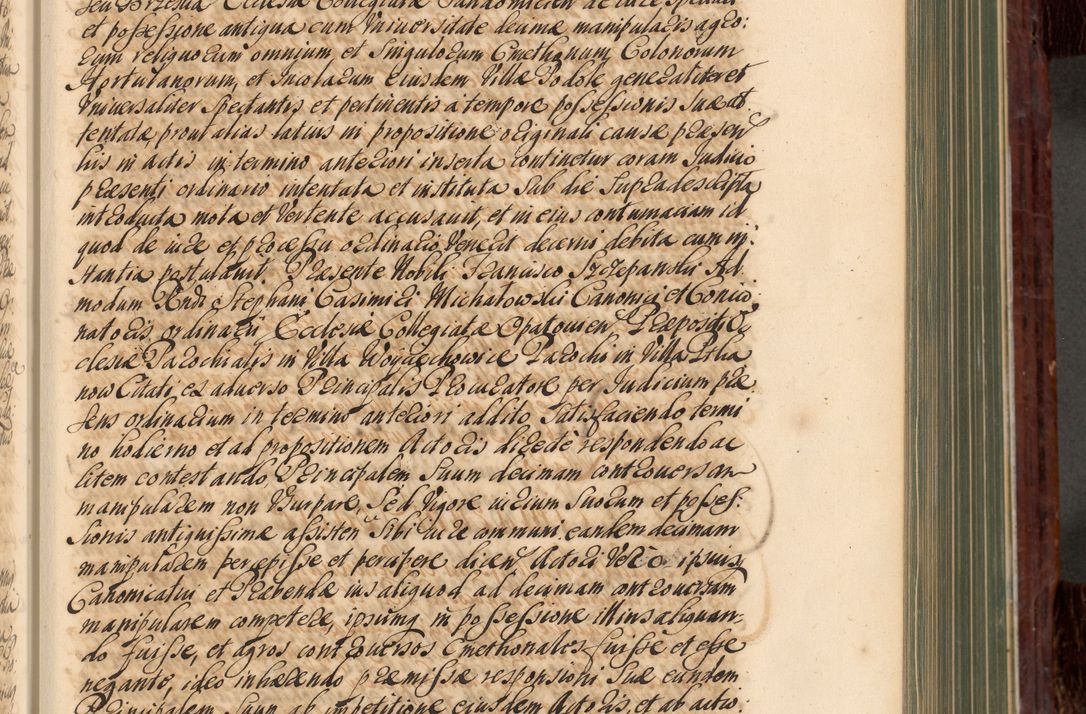 seu Brzesia Ecclesiæ Collegiatæ Sandomirien de iure spectat
et possessione antiqua cum Universitate decimæ manipularis agro:
rum reliquorum omnium et Singulorum Cmethonum, Colonorum
Hortulanorum, et Incolarum eiusdem Villæ Podole generaliter et
Universaliter Spectantis et pertinentis a tempore possessionis suæ at
tentatæ prout alias latius in propositione originali causæ præsen
tis in actis in termino anteriori inserta continetur coram Judicio
præsenti ordinario intentata et instituta Sub die Supradescripta
introducta mota et Vertente accusavit, et in eius contumaciam id
quod de iure et processu ordinario Venerit decerni debita cum in:
stantia postulavit. Præsente Nobili Francisco Szczepanski Ad
modum Rndi Stephani Casimiri Michałowski Canonici et Concio:
natoris ordinarii Ecclesiæ Collegiatæ Opatovien Præpositi Ec
clesiæ Parochialis in Villa Woyciechowice Parochi in Villa Ptka
now Citati ex adverso Principalis Procuratore per Judicium præ
sens ordinarium in termino anteriori addito Satisfaciendo termi
no hodierno et ad propositionem Actoris dizede respondendo ac
litem contestando Principalem Suum decimam controversam
manipularem non Usurpare, Sed Vigore iurium Suorum et posses:
sionis antiquissimæ assisten Sibi iure communi eandem decimam
manipularem percepisse et percipere dicen Actori Vero ipsius
Canonicatui et Præbendæ ius aliquod ad decimam controversam
manipularem competere, ipsumq in possessione illius aliquan:
do fuisse, et agros controversos Cmethonales fuisse et esse
negante, ideo inhærendo præmissæ responsioni Suæ eundem
Principalem Suum ab impetitione eiusdem Actoris, et ab actio: